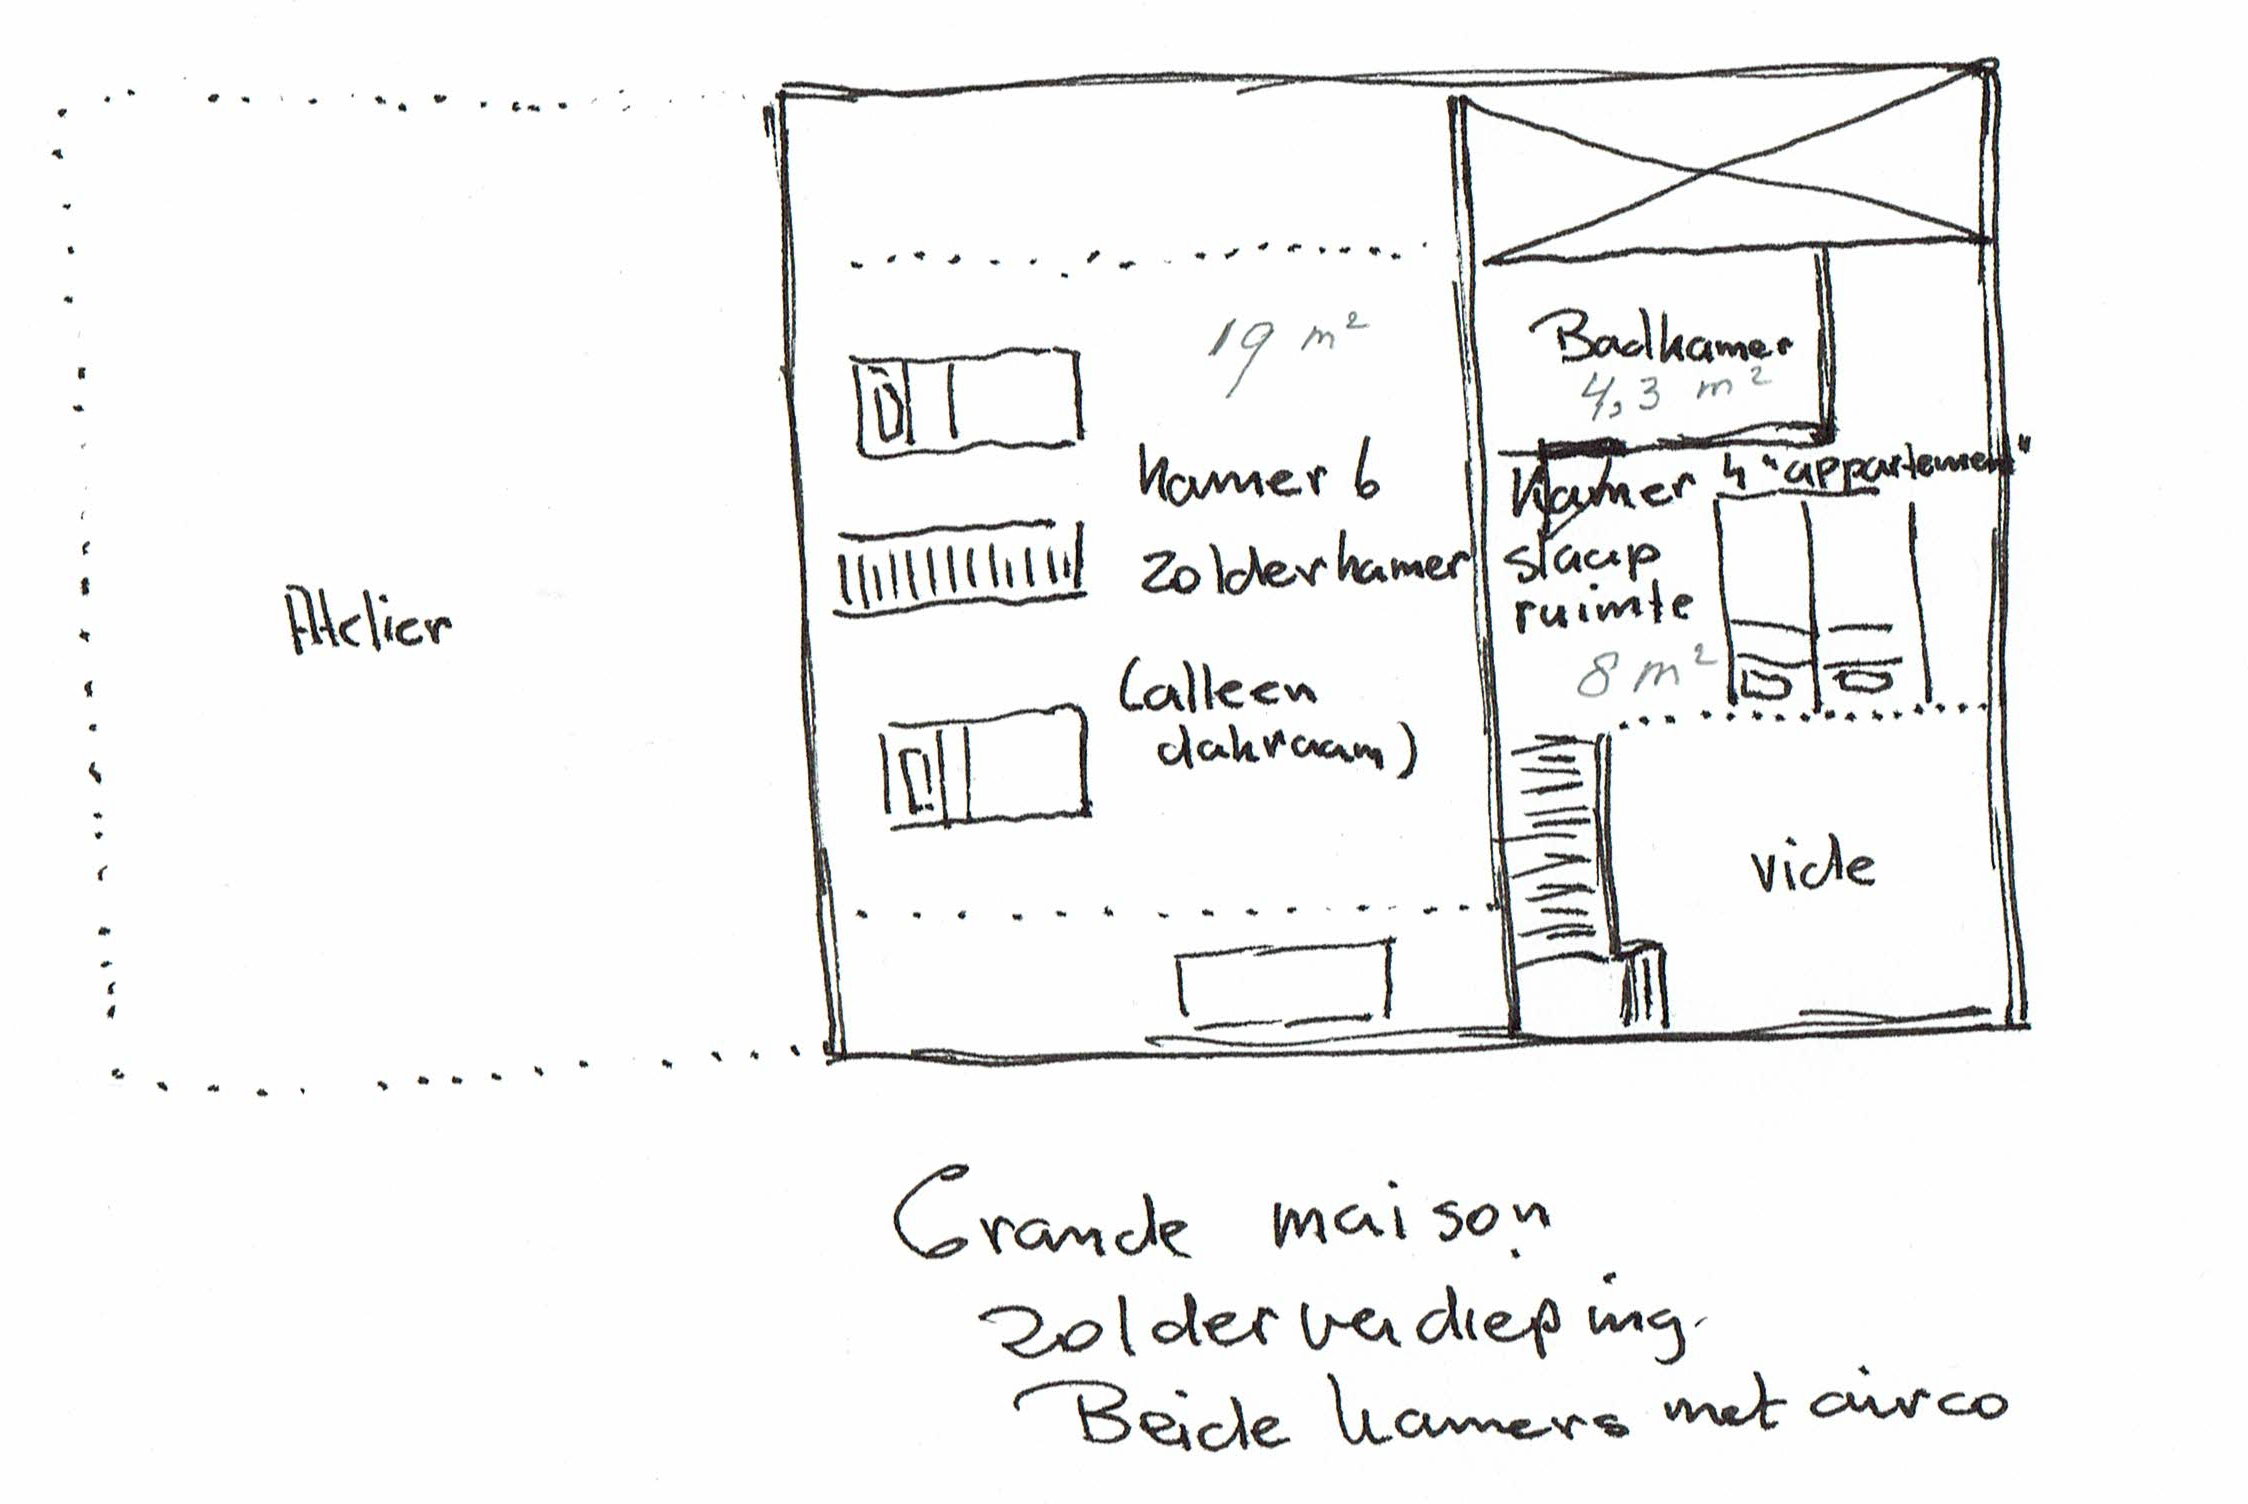 Atelier
19 m²
Kamer 6
zolderkamer
(alleen
dakraam)
Badkamer
4,3 m²
Kamer 4 "appartement"
slaap
ruimte
8 m²
vide
Grande maison
zolderverdieping.
Beide kamers met airco